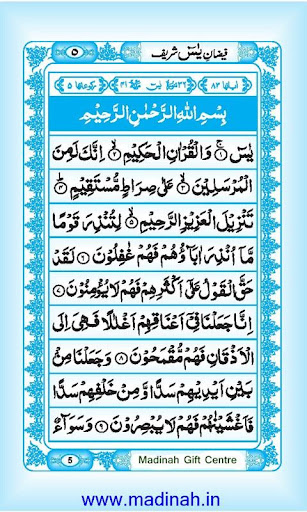 ۵ فیضانِ یٰسٓ شریف
اٰیاتها ۸۳ ﴿۳۶﴾ ۴۱ رکوعاتها ۵
بِسْمِ اللّٰهِ الرَّحْمٰنِ الرَّحِیْمِ
یٰسٓ ۚ﴿۱﴾ وَ الْقُرْاٰنِ الْحَكِیْمِ ۙ﴿۲﴾ اِنَّكَ لَمِنَ
الْمُرْسَلِیْنَ ۙ﴿۳﴾ عَلٰى صِرَاطٍ مُّسْتَقِیْمٍ ؕ﴿۴﴾
تَنْزِیْلَ الْعَزِیْزِ الرَّحِیْمِ ۙ﴿۵﴾ لِتُنْذِرَ قَوْمًا
مَّاۤ اُنْذِرَ اٰبَآؤُهُمْ فَهُمْ غٰفِلُوْنَ ﴿۶﴾ لَقَدْ
حَقَّ الْقَوْلُ عَلٰۤى اَكْثَرِهِمْ فَهُمْ لَا یُؤْمِنُوْنَ ﴿۷﴾
اِنَّا جَعَلْنَا فِیْۤ اَعْنَاقِهِمْ اَغْلٰلًا فَهِیَ اِلَى
الْاَذْقَانِ فَهُمْ مُّقْمَحُوْنَ ﴿۸﴾ وَ جَعَلْنَا مِنْۢ
بَیْنِ اَیْدِیْهِمْ سَدًّا وَّ مِنْ خَلْفِهِمْ سَدًّا
فَاَغْشَیْنٰهُمْ فَهُمْ لَا یُبْصِرُوْنَ ﴿۹﴾ وَ سَوَآءٌ
5 Madinah Gift Centre
www.madinah.in